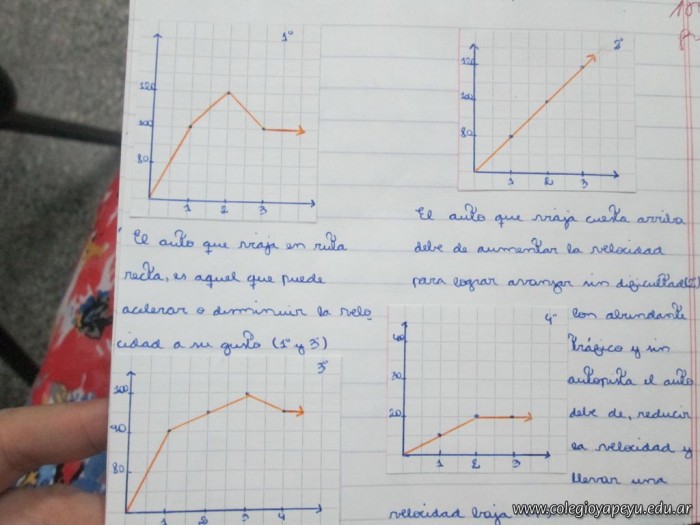 1º
120
100
80
1 2 3
El auto que viaja en ruta
recta, es aquel que puede
acelerar o disminuir la velo
cidad a su gusto (1º y 3º)
3º
100
90
80
1 2 3 4
2º
120
100
80
1 2 3
El auto que viaja cuesta arriba
debe de aumentar la velocidad
para lograr avanzar sin dificultad(2º)
4º
40
30
20
1 2 3
Con abundante
tráfico y sin
autopista el auto
debe de, reducir
la velocidad y
llevar una
velocidad baja
www.colegioyapeyu.edu.ar